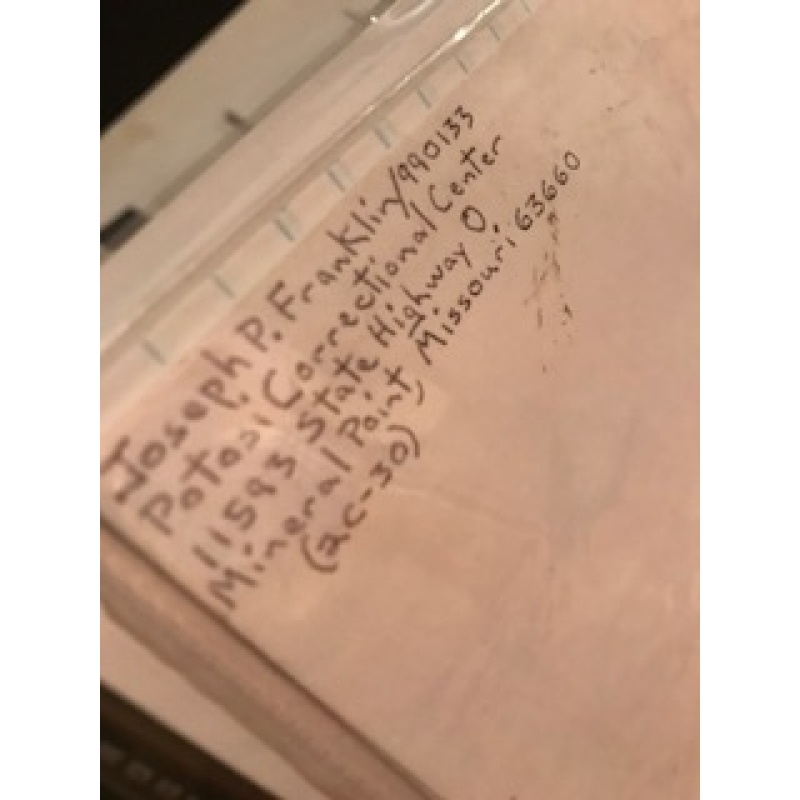 Joseph P. Franklin/990133
Potosi Correctional Center
11593 State Highway O.
Mineral Point, Missouri 63660
(2C-30)